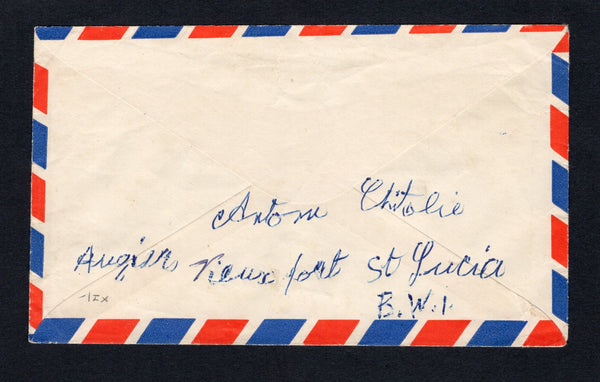 Antom Chitolie
Augier, Vieux fort St Lucia
B.W.I.